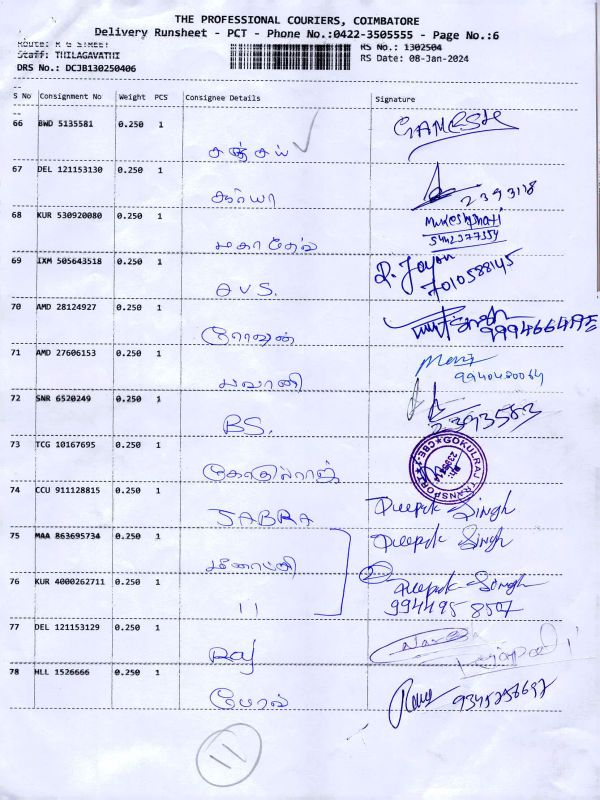 THE PROFESSIONAL COURIERS, COIMBATORE
Delivery Runsheet - PCT - Phone No.:0422-3505555 - Page No.:6
Route: R G STREET RS No.: 1302504
Staff: THILAGAVATHI RS Date: 08-Jan-2024
DRS No.: DCJB130250406
S No Consignment No Weight PCS Consignee Details Signature
66 BWD 5135581 0.250 1 GANESH
சஞ்சய்
67 DEL 121153130 0.250 1
சூர்யா 2393118
68 KUR 530920080 0.250 1
மகாதேவ்
69 IXM 505643518 0.250 1
AVS. 7010588145
70 AMD 28124927 0.250 1
71 AMD 27606153 0.250 1
பவானி 9940420064
72 SNR 6520249 0.250 1
BS. 2393583
73 TCG 10167695 0.250 1 GOKULRAJ TRANSPORT
கோகுல்ராஜ்
74 CCU 911128815 0.250 1 Deepak Singh
JABRA
75 MAA 863695734 0.250 1 Deepak Singh
மீனாட்சி
76 KUR 4000262711 0.250 1 Deepak Singh
11 994495 8507
77 DEL 121153129 0.250 1
Raj
78 HLL 1526666 0.250 1
11